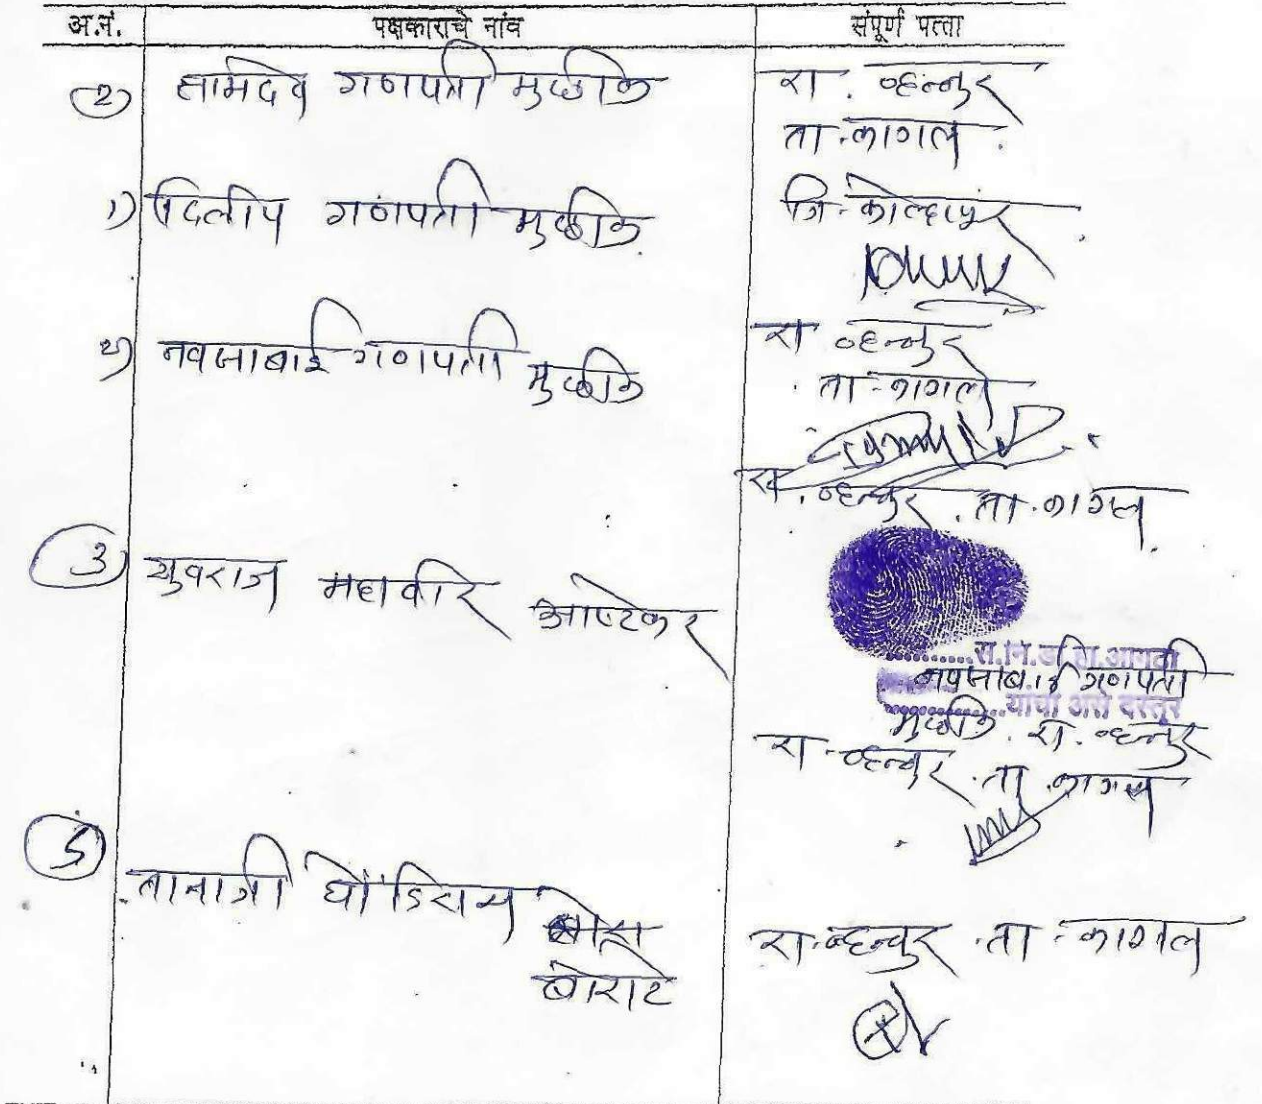 अ.नं. पक्षकाराचे नांव संपूर्ण पत्ता
२) नामदेव गणपती मुळीक रा. व्हन्नुर
ता. कागल.
१) दिलीप गणपती मुळीक जि. कोल्हापूर
२) नवजाबाई गणपती मुळीक रा. व्हन्नुर
ता. कागल
रा. व्हन्नुर. ता. कागल.
३) युवराज महावीर आष्टेकर
स.नि.डा.हा.आंगठा
नवजाबाई गणपती
यांचा असे दस्तूर
मुळीक. रा. व्हन्नुर
रा. व्हन्नुर. ता. कागल
तानाजी धोंडिराम
बोराटे
रा. व्हन्नुर. ता. कागल